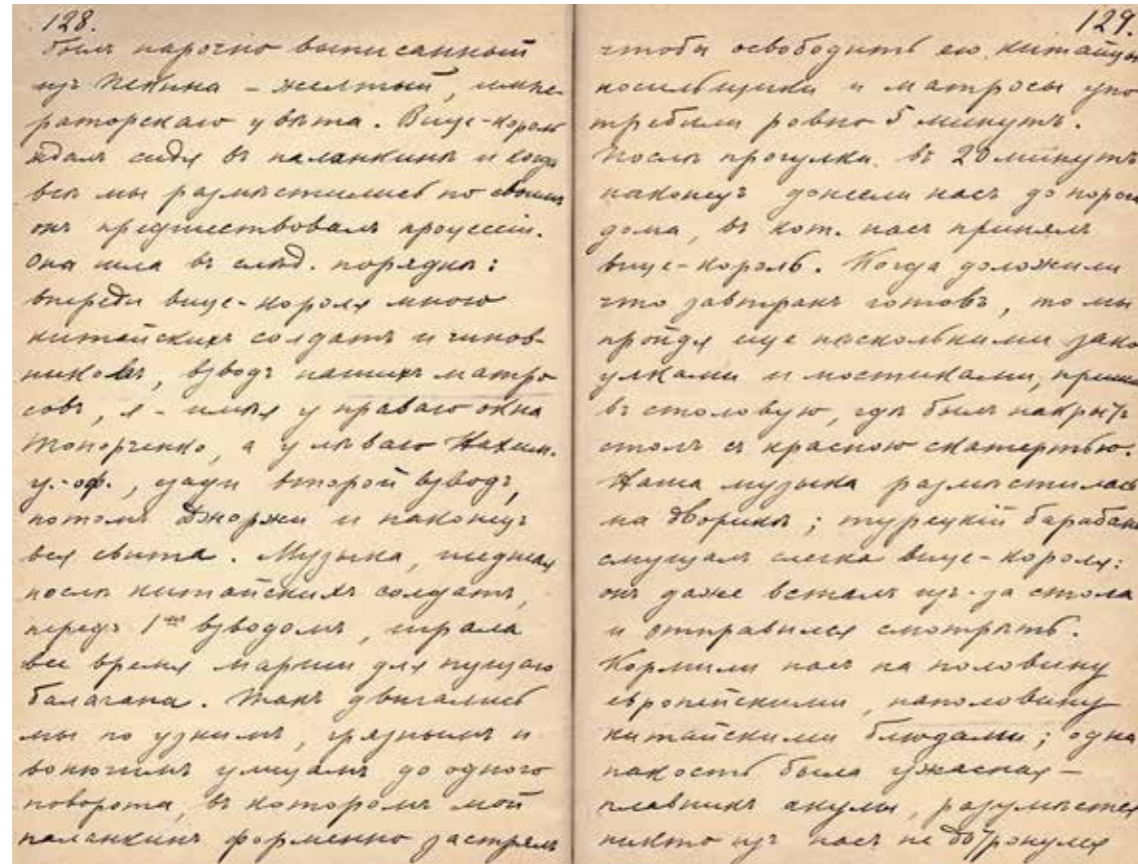 128.
былъ нарочно выписанный
изъ Пекина – желтый, импе-
раторскаго цвѣта. Вице-король
ждалъ сидя въ паланкинѣ и когда
всѣ мы размѣстились по своимъ
онъ предшествовалъ процессіи.
Она шла въ слѣд. порядкѣ:
впереди вице-короля много
китайскихъ солдатъ и чинов-
никовъ, взводъ нашихъ матро
совъ, я – имѣя у праваго окна
Топорченко, а у лѣваго Нахим.
у.-оф., сзади второй взводъ,
потомъ Джоржи и наконецъ
вся свита. Музыка, шедшая
послѣ китайскихъ солдатъ,
передъ 1ымъ взводомъ, играла
все время марши для пущаго
балагана. Такъ двигались
мы по узкимъ, грязнымъ и
вонючимъ улицамъ до одного
поворота, въ которомъ мой
паланкинъ форменно застрялъ
129.
чтобы освободить его, китайцы
носильщики и матросы упо
требили ровно 5 минутъ.
Послѣ прогулки въ 20 минутъ
наконецъ донесли насъ до порога
дома, въ кот. насъ принялъ
вице-король. Когда доложили
что завтракъ готовъ, то мы
пройдя еще нѣсколькими зако
улками и мостиками, пришли
въ столовую, гдѣ былъ накрытъ
столъ съ красною скатертью.
Наша музыка размѣстилась
на дворикѣ; турецкій барабанъ
смущалъ слегка вице-короля:
онъ даже всталъ изъ-за стола
и отправился смотрѣть.
Кормили насъ на половину
европейскими, наполовину
китайскими блюдами; одна
пакость была ужасная –
плавникъ акулы, разумѣется
никто изъ насъ не дотронулся